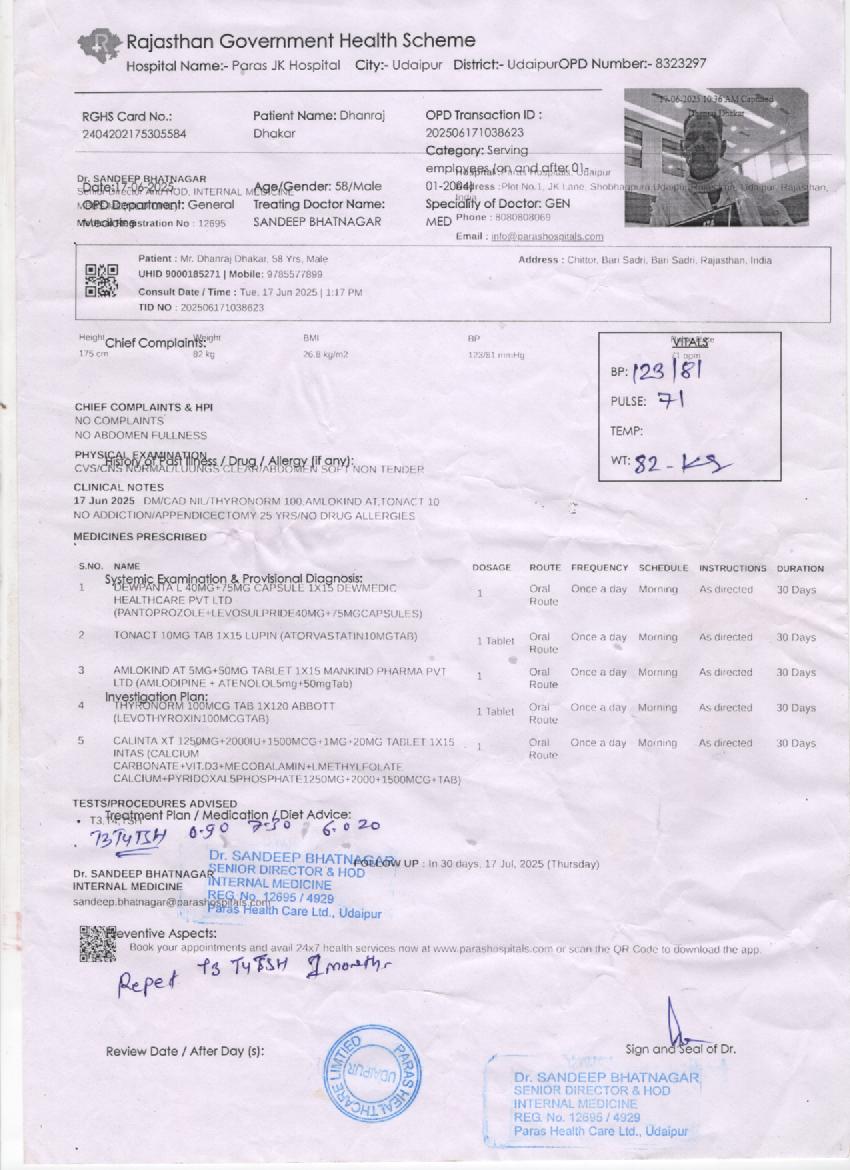 Rajasthan Government Health Scheme
Hospital Name:- Paras JK Hospital City:- Udaipur District:- UdaipurOPD Number:- 8323297
17-06-2025 10:36 AM Captured
Dhanraj Dhakar
RGHS Card No.:
2404202175305584
Patient Name: Dhanraj
Dhakar
OPD Transaction ID :
202506171038623
Category: Serving
employees (on and after 01-
01-2004)
Dr. SANDEEP BHATNAGAR
Senior Director And HOD, INTERNAL MEDICINE
Date:17-06-2025
Age/Gender: 58/Male
Address :Plot No.1, JK Lane, Shobhagpura Udaipur Rajasthan, Udaipur, Rajasthan,
India
OPD Department: General
Medicine
Treating Doctor Name:
SANDEEP BHATNAGAR
Speciality of Doctor: GEN
MED
Registration No : 12695
Phone : 8080808069
Email : info@parashospitals.com
Patient : Mr. Dhanraj Dhakar, 58 Yrs, Male
Address : Chittor, Bari Sadri, Bari Sadri, Rajasthan, India
UHID 9000185271 | Mobile: 9785577899
Consult Date / Time : Tue, 17 Jun 2025 | 1:17 PM
TID NO : 202506171038623
Height Weight BMI BP
Chief Complaints:
175 cm 82 kg 26.8 kg/m2 123/81 mmHg 71 bpm
VITALS
BP: 123/81
PULSE: 71
TEMP:
WT: 82-KG
CHIEF COMPLAINTS & HPI
NO COMPLAINTS
NO ABDOMEN FULLNESS
PHYSICAL EXAMINATION
History of Past Illness / Drug / Allergy (if any):
CVS/CNS NORMAL/LUUNGS CLEAR/ABDOMEN SOFT NON TENDER
CLINICAL NOTES
17 Jun 2025 DM/CAD NIL/THYRONORM 100,AMLOKIND AT,TONACT 10
NO ADDICTION/APPENDICECTOMY 25 YRS/NO DRUG ALLERGIES
MEDICINES PRESCRIBED
S.NO. NAME DOSAGE ROUTE FREQUENCY SCHEDULE INSTRUCTIONS DURATION
Systemic Examination & Provisional Diagnosis:
1 DEWPANTA L 40MG+75MG CAPSULE 1X15 DEWMEDIC 1 Oral Once a day Morning As directed 30 Days
HEALTHCARE PVT LTD Route
(PANTOPROZOLE+LEVOSULPRIDE40MG+75MGCAPSULES)
2 TONACT 10MG TAB 1X15 LUPIN (ATORVASTATIN10MGTAB) 1 Tablet Oral Once a day Morning As directed 30 Days
Route
3 AMLOKIND AT 5MG+50MG TABLET 1X15 MANKIND PHARMA PVT 1 Oral Once a day Morning As directed 30 Days
LTD (AMLODIPINE + ATENOLOL5mg+50mgTab) Route
Investigation Plan:
4 THYRONORM 100MCG TAB 1X120 ABBOTT 1 Tablet Oral Once a day Morning As directed 30 Days
(LEVOTHYROXIN100MCGTAB) Route
5 CALINTA XT 1250MG+2000IU+1500MCG+1MG+20MG TABLET 1X15 1 Oral Once a day Morning As directed 30 Days
INTAS (CALCIUM Route
CARBONATE+VIT.D3+MECOBALAMIN+LMETHYLFOLATE
CALCIUM+PYRIDOXAL5PHOSPHATE1250MG+2000+1500MCG+TAB)
TESTS/PROCEDURES ADVISED
Treatment Plan / Medication / Diet Advice:
• T3,T4,TSH
T3T4TSH 0.90 7.30 6.020
Dr. SANDEEP BHATNAGAR
SENIOR DIRECTOR & HOD
INTERNAL MEDICINE
REG. No. 12695 / 4929
Paras Health Care Ltd., Udaipur
FOLLOW UP : In 30 days, 17 Jul, 2025 (Thursday)
Dr. SANDEEP BHATNAGAR
INTERNAL MEDICINE
sandeep.bhatnagar@parashospitals.com
Preventive Aspects:
Book your appointments and avail 24x7 health services now at www.parashospitals.com or scan the QR Code to download the app.
Repet T3 T4 TSH 2 months
Review Date / After Day (s):
Sign and Seal of Dr.
PARAS HEALTHCARE LIMTIED
UDAIPUR
Dr. SANDEEP BHATNAGAR
SENIOR DIRECTOR & HOD
INTERNAL MEDICINE
REG. No. 12695 / 4929
Paras Health Care Ltd., Udaipur